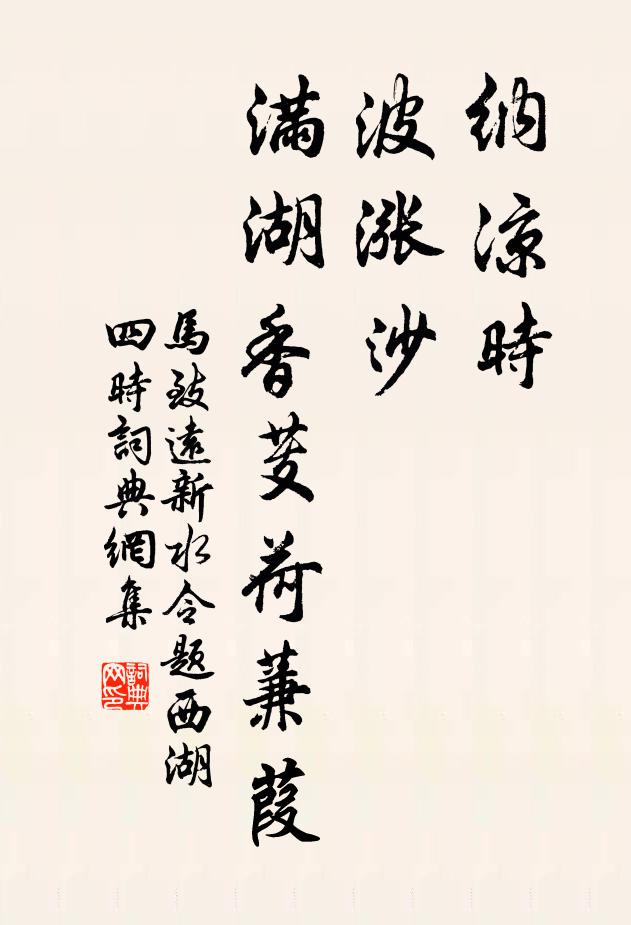 納凉時
波漲沙
滿湖香芰荷蒹葭
馬致遠新水令題西湖
四時詞典網集
詞典網印